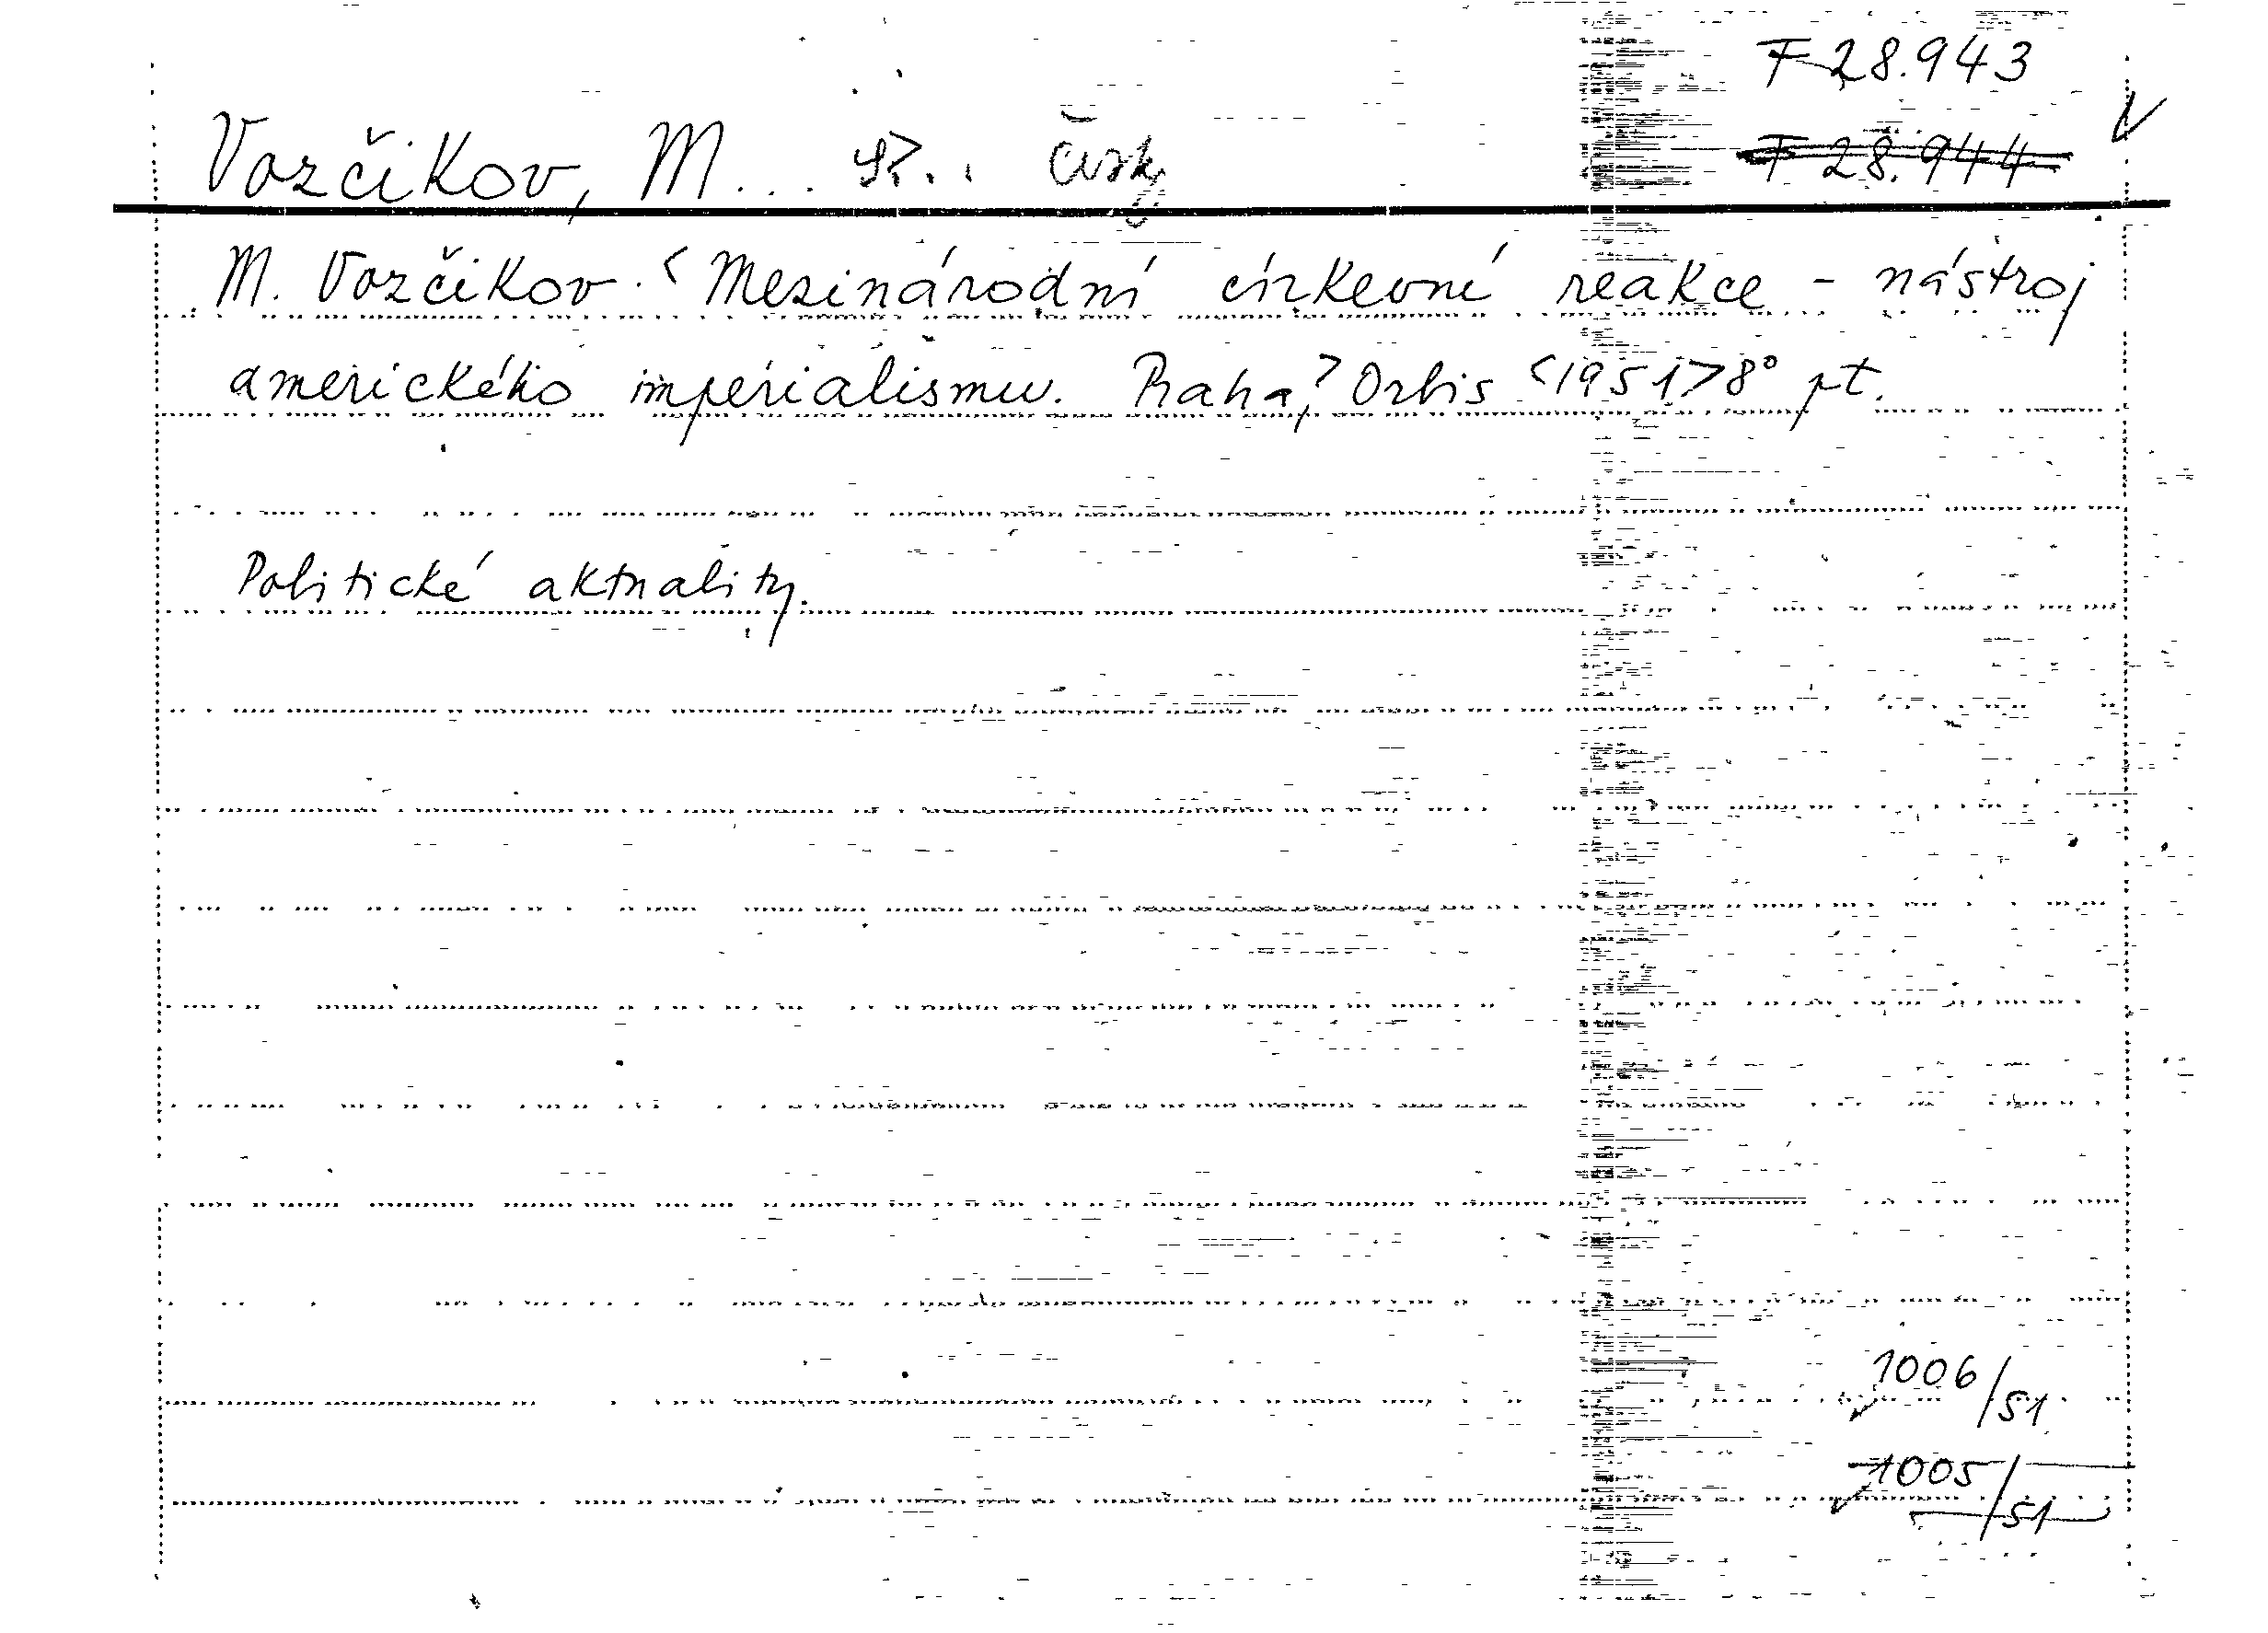 F 28.943
F 28.944
Vozčikov, M... Česky
M. Vozčikov. <Mezinárodní církevní reakce - nástroj
amerického imperialismu. Praha,> Orbis <1951> 8° pt.
Politické aktuality.
1006/51
1005/51